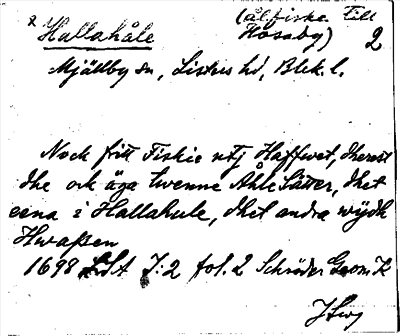 x Hallahåle (ålfiske till Hosaby) 2
Mjällby sn, Listers hd, Blek. l.
Nock fritt Fiskie utj Haffwet, therest
dhe ock äga twenne Åhle Sätter, dhet
eena i Hallahule, dhet andra wijdh
Hwaßen
1698 LSA I:2 fol. 2 Schröder Geom. K